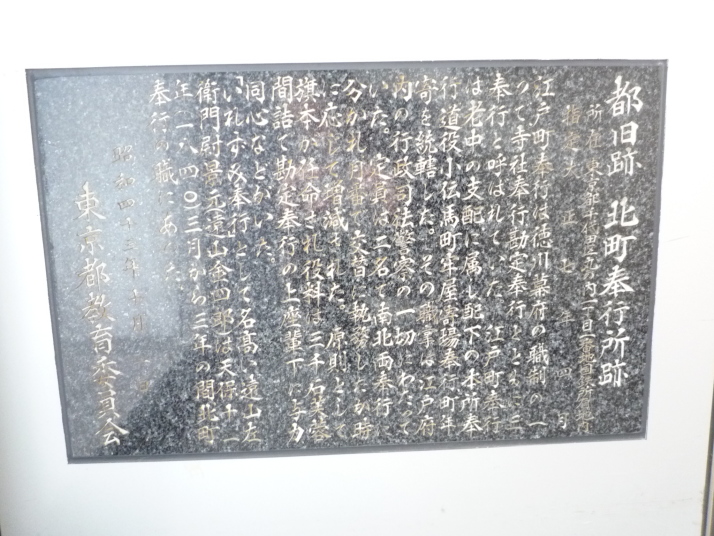 都旧跡 北町奉行所跡
所在 東京都千代田区丸の内一丁目
指定 大正七年四月
江戸町奉行は徳川幕府の職制の一
つで寺社奉行勘定奉行とともに三
奉行と呼ばれていた 江戸町奉行
は老中の支配に属し配下の本所奉
行道役小伝馬町牢屋寄場奉行町年
寄を統轄した。その職掌は江戸府
内の行政司法警察の一切にわたって
いた。定員は二名で南北両奉行に
分かれ月番で交替に執務したが時
に応じて増減された 原則として
旗本が任命され役料は三千石芙蓉
間詰で勘定奉行の上座輩下に与力
同心などがいた
いれずみ奉行として名高い遠山左
衛門尉景元遠山金四郎は天保十一
年一八四〇三月から三年の間北町
奉行の職にあった
昭和四十三年十月 日
東京都教育委員会